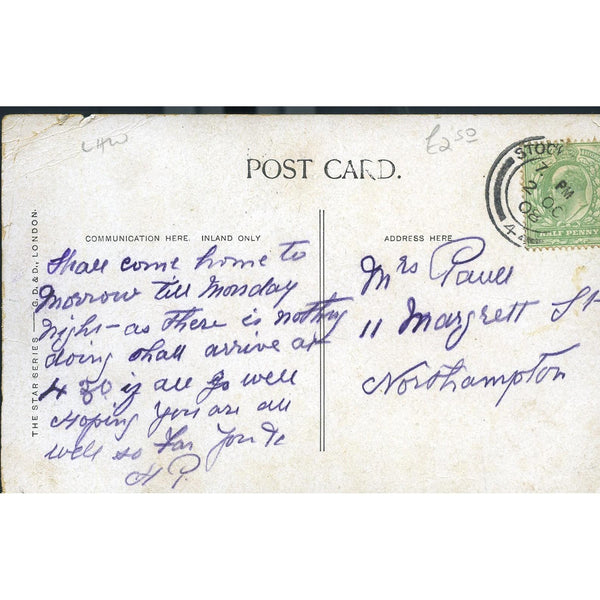 LHW
£2 50
POST CARD.
STOCK
7 PM
2 OC
08
44
HALF PENNY
THE STAR SERIES — G. D. & D., LONDON.
COMMUNICATION HERE. INLAND ONLY
Shall come home to
morrow till Monday
night - as there is nothing
doing shall arrive at
4 30 if all go well
Hoping you are all
well so far
H P.
ADDRESS HERE.
Mrs Paull
11 Margrett St
Northampton